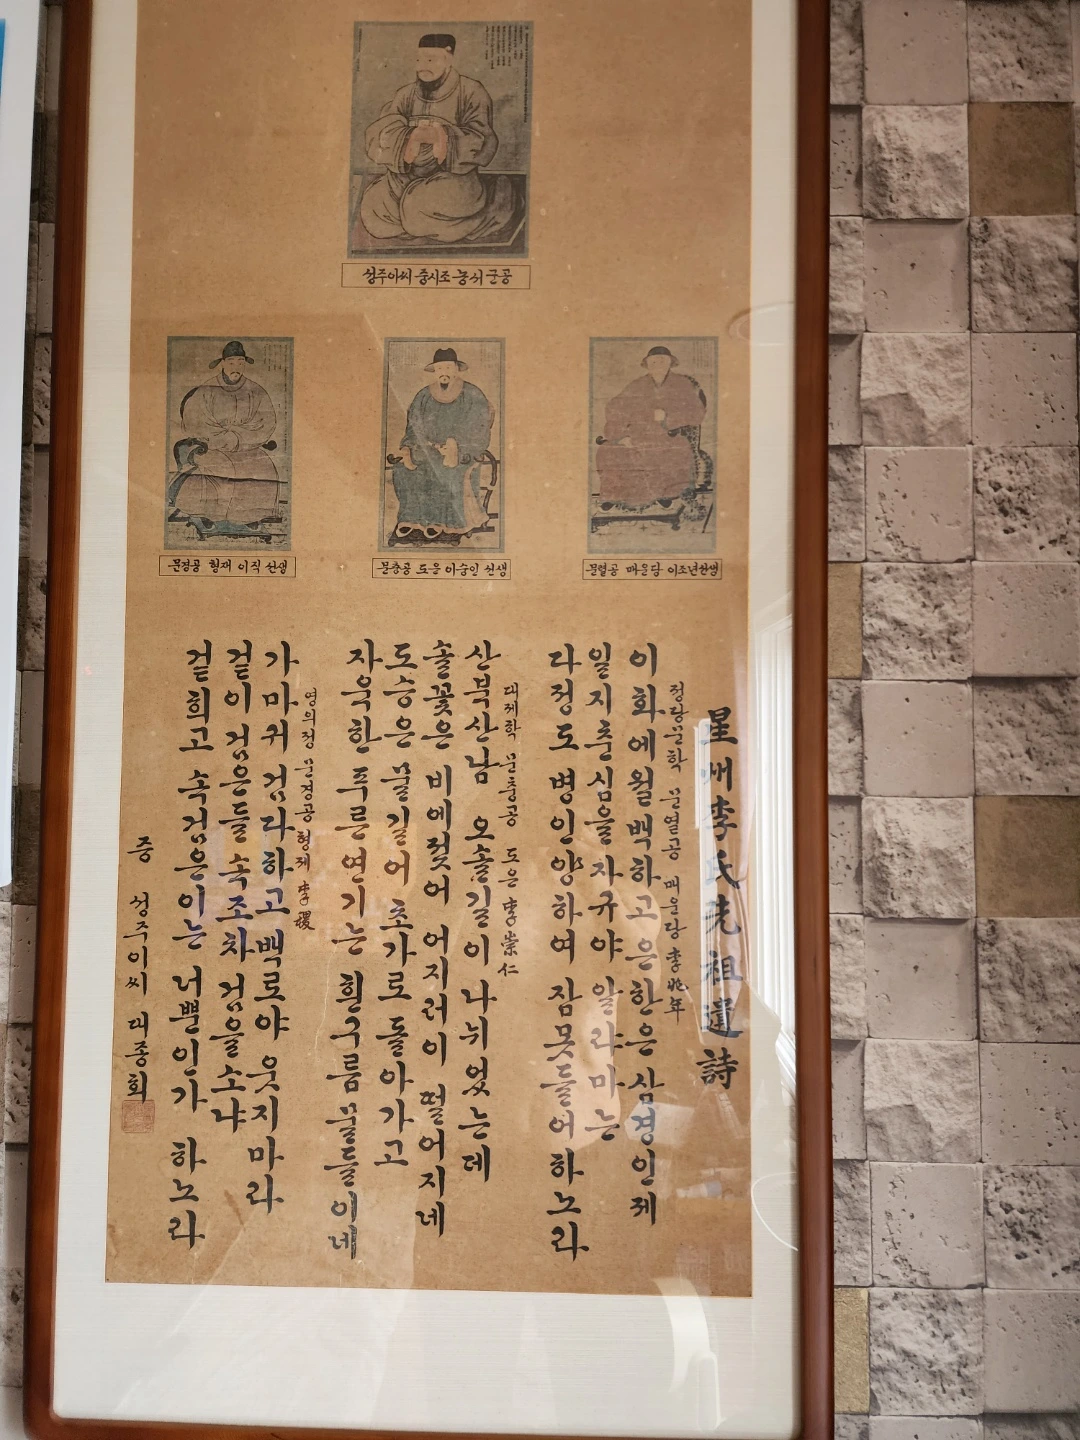 성주이씨 중시조 농서군공
문경공 형재 이직 선생
문충공 도은 이숭인 선생
문렬공 매운당 이조년 선생
星州李氏先祖遺詩
정당문학 문열공 매운당 李兆年
이화에월백하고은한은삼경인제
일지춘심을자규야알랴마는
다정도병인양하여잠못들어하노라
대제학 문충공 도은 李崇仁
산북산남 오솔길이나뉘었는데
솔꽃은비에젖어어지러이떨어지네
도승은물길어초가로돌아가고
자욱한푸른연기는흰구름물들이네
영의정 문경공 형제 李稷
가마귀검다하고백로야웃지마라
겉이검은들속조차검을소냐
겉희고속검은이는너뿐인가하노라
증 성주이씨 대종회